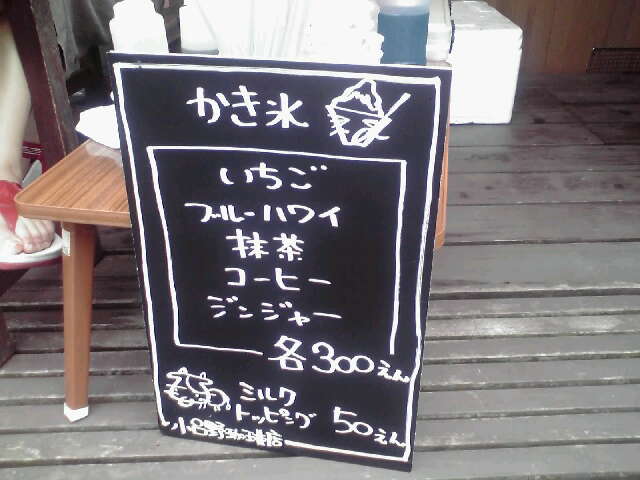 かき氷
いちご
ブルーハワイ
抹茶
コーヒー
ジンジャー
各300えん
ミルク
トッピング 50えん
小呂野珈琲店